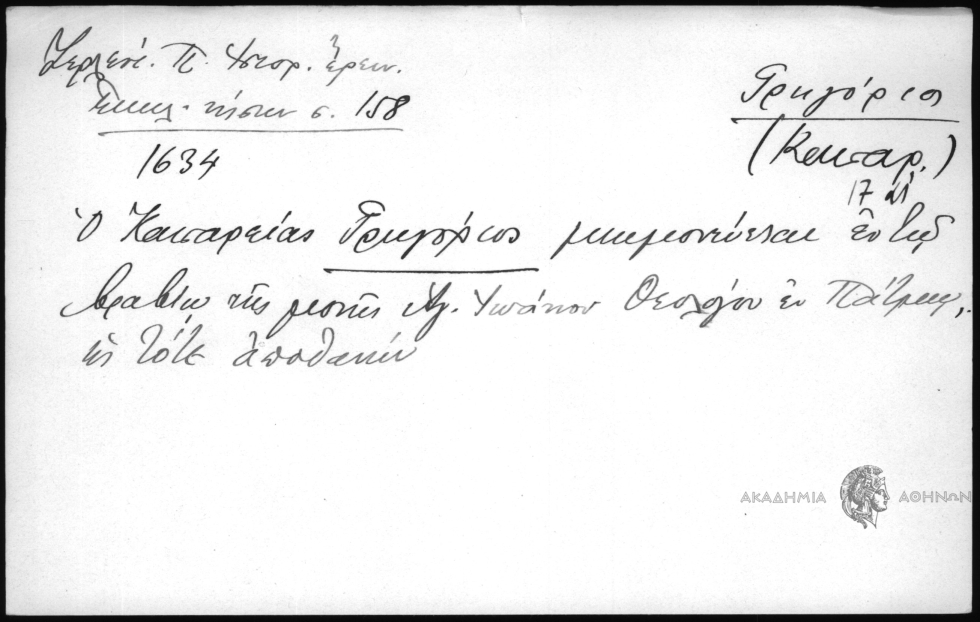 Ζερλέντ. Π. Ἱστορ. ἔρευν.
Ἐκκλ. νήσων σ. 158
1634
Γρηγόριος
(Καισαρ.)
17 αἰ
Ὁ Καισαρείας Γρηγόριος μνημονεύεται ἐν τῷ
βραβίῳ τῆς μονῆς Ἁγ. Ἰωάννου Θεολόγου ἐν Πάτμῳ,
ὡς τότε ἀποθανών
ΑΚΑΔΗΜΙΑ ΑΘΗΝΩΝ